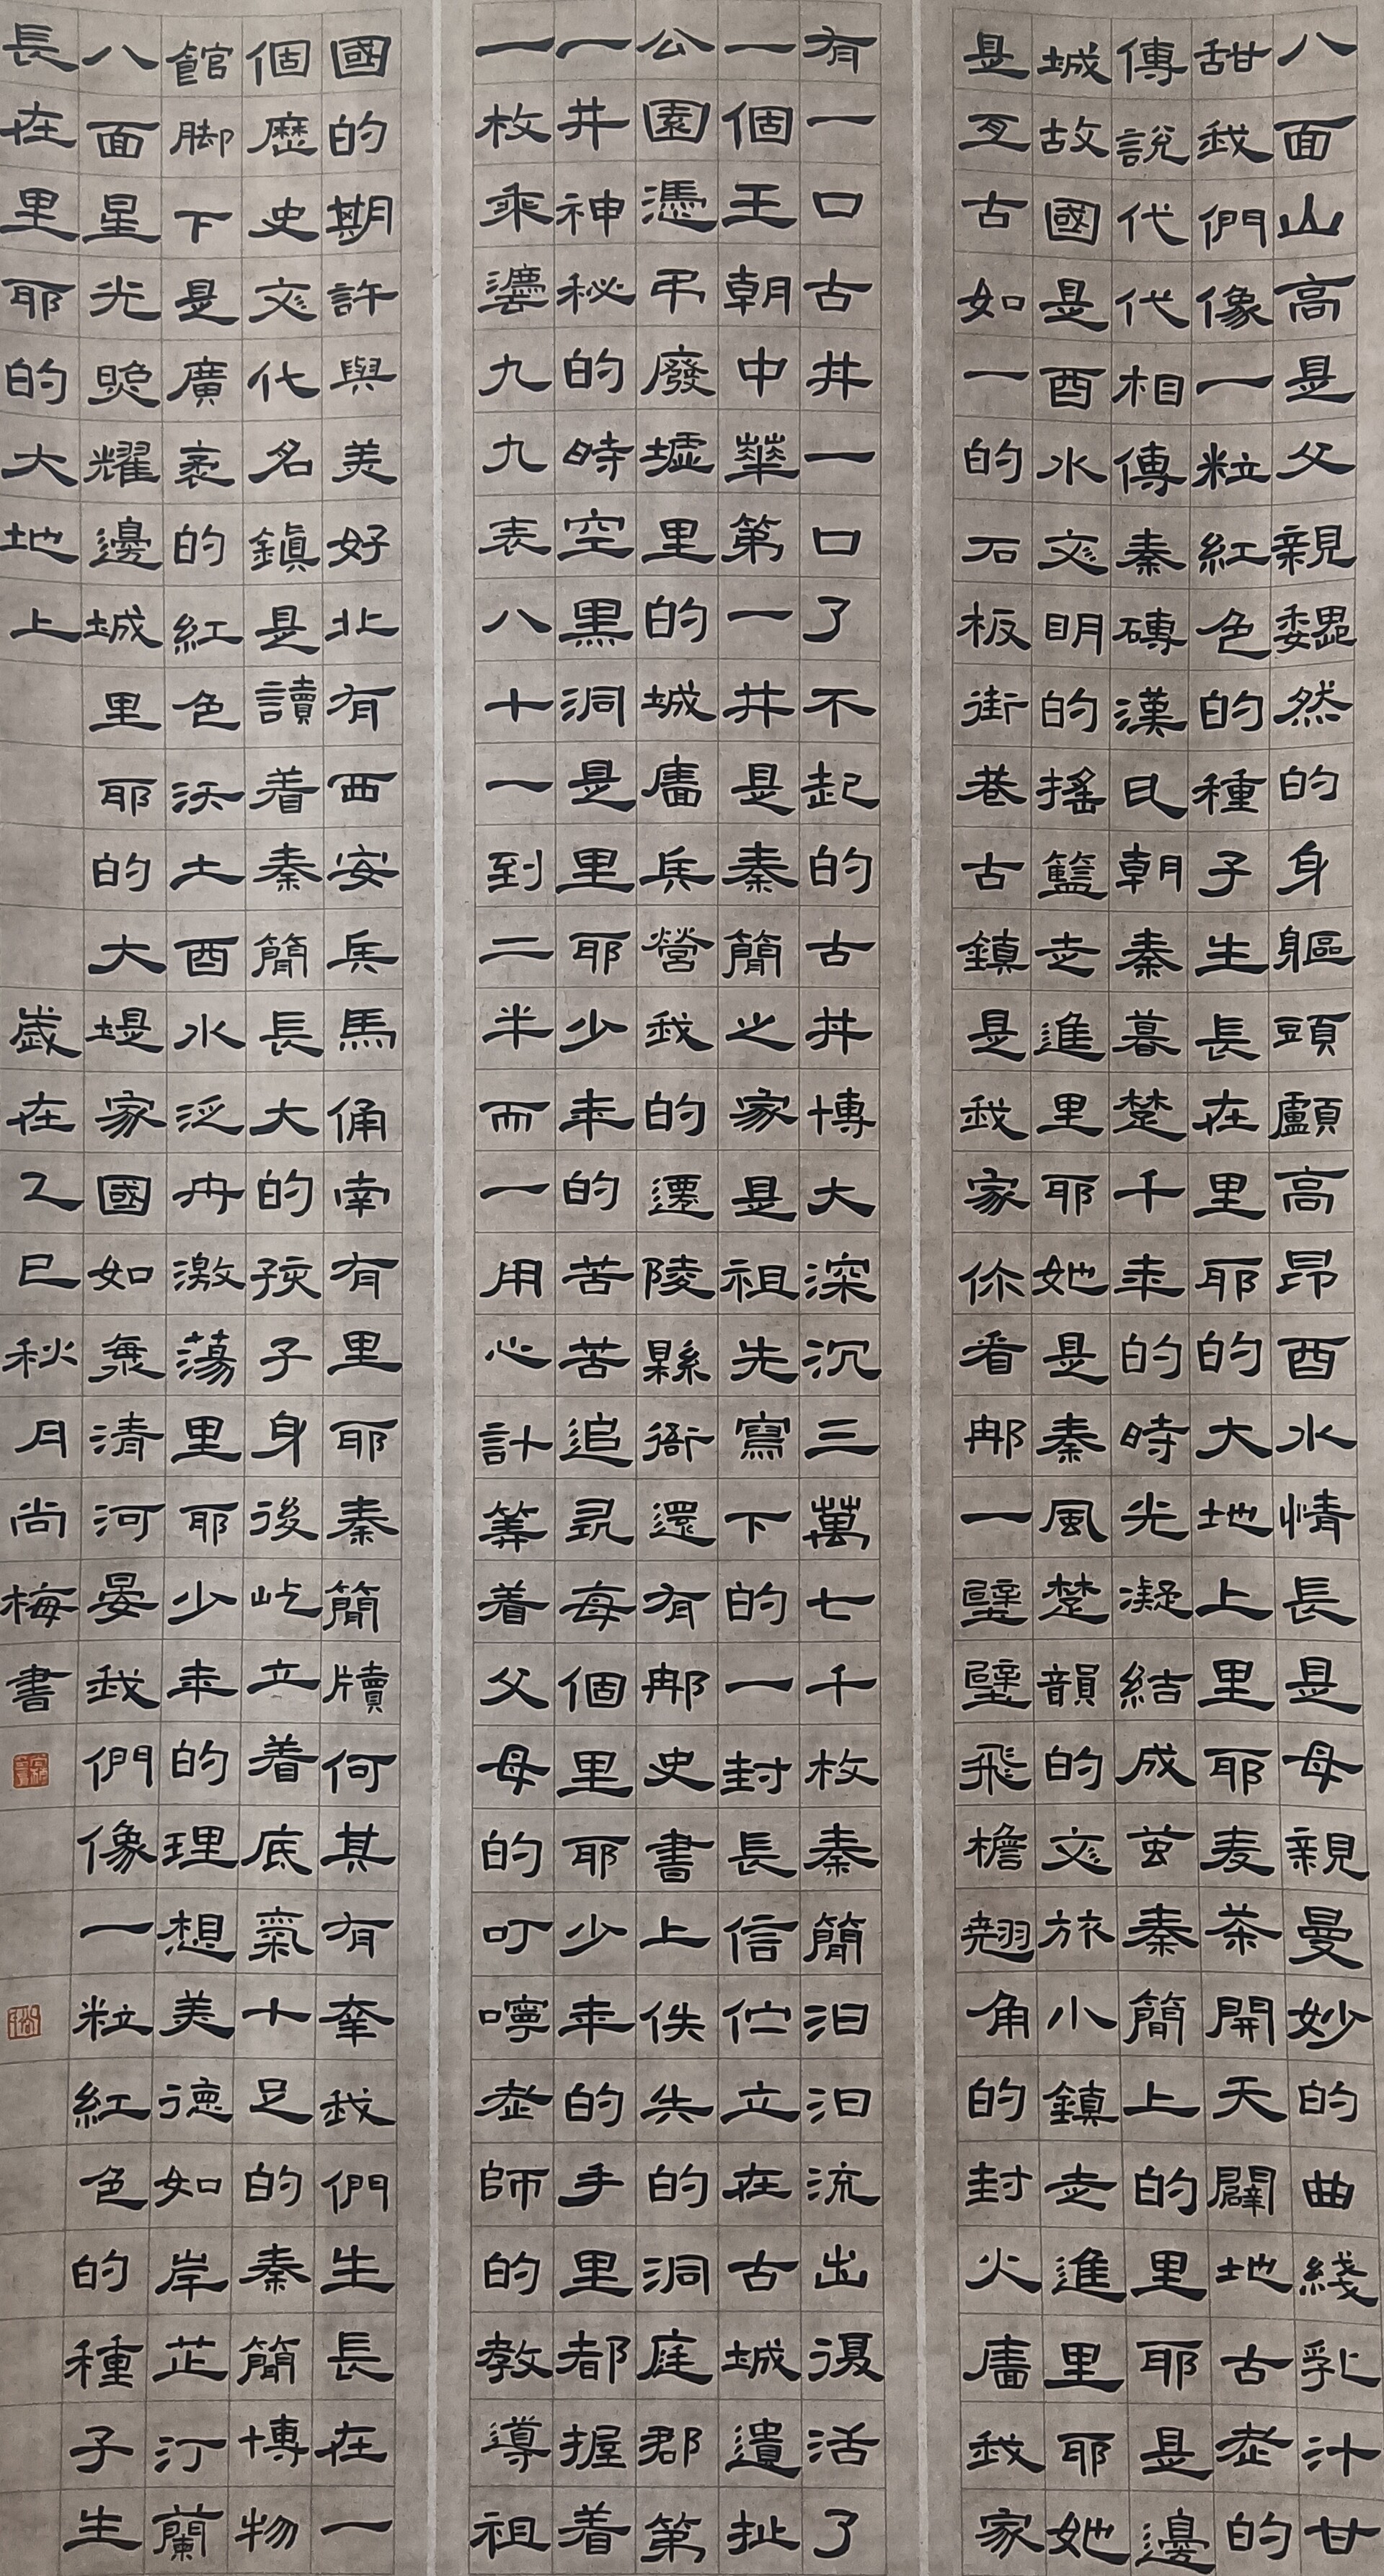 八面山高是父親巍然的身軀頭顱高昂酉水情長是母親曼妙的曲綫乳汁甘
甜我們像一粒紅色的種子生長在里耶的大地上里耶麦茶開天闢地古老的
傳說代代相傳秦磚漢瓦朝秦暮楚千年的時光凝結成茧秦簡上的里耶是邊
城故國是酉水文明的搖籃走進里耶她是秦風楚韻的文旅小鎮走進里耶她
是亙古如一的石板街巷古鎮是我家你看那一壁壁飛檐翹角的封火牆我家
有一口古井一口了不起的古井博大深沉三萬七千枚秦簡汩汩流出復活了
一個王朝中華第一井是秦簡之家是祖先寫下的一封長信伫立在古城遺址
公園憑弔廢墟里的城牆兵營我的遷陵縣衙還有那史書上佚失的洞庭郡第
一井神秘的時空黑洞是里耶少年的苦苦追尋每個里耶少年的手里都握着
一枚乘灋九九表八十一到二半而一用心計筭着父母的叮嚀老師的教導祖
國的期許與美好北有西安兵馬俑南有里耶秦簡牘何其有幸我們生長在一
個歷史文化名鎮是讀着秦簡長大的孩子身後屹立着底氣十足的秦簡博物
館脚下是廣袤的紅色沃土酉水泛舟激蕩里耶少年的理想美德如岸芷汀蘭
八面星光晃耀邊城里耶的大堤家國如清河晏我們像一粒紅色的種子生
長在里耶的大地上 歲在乙巳秋月尚梅書